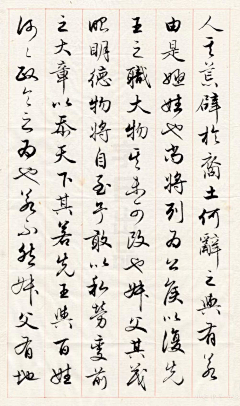 人其蕪辟於裔土何辭之與有若
由是姬姓也尚將列為公侯以復先
王之職大物其未可改也叔父其茂
昭明德物將自至余敢以私勞變前
之大章以忝天下其若先王與百姓
何何政令之為也若不然叔父有地